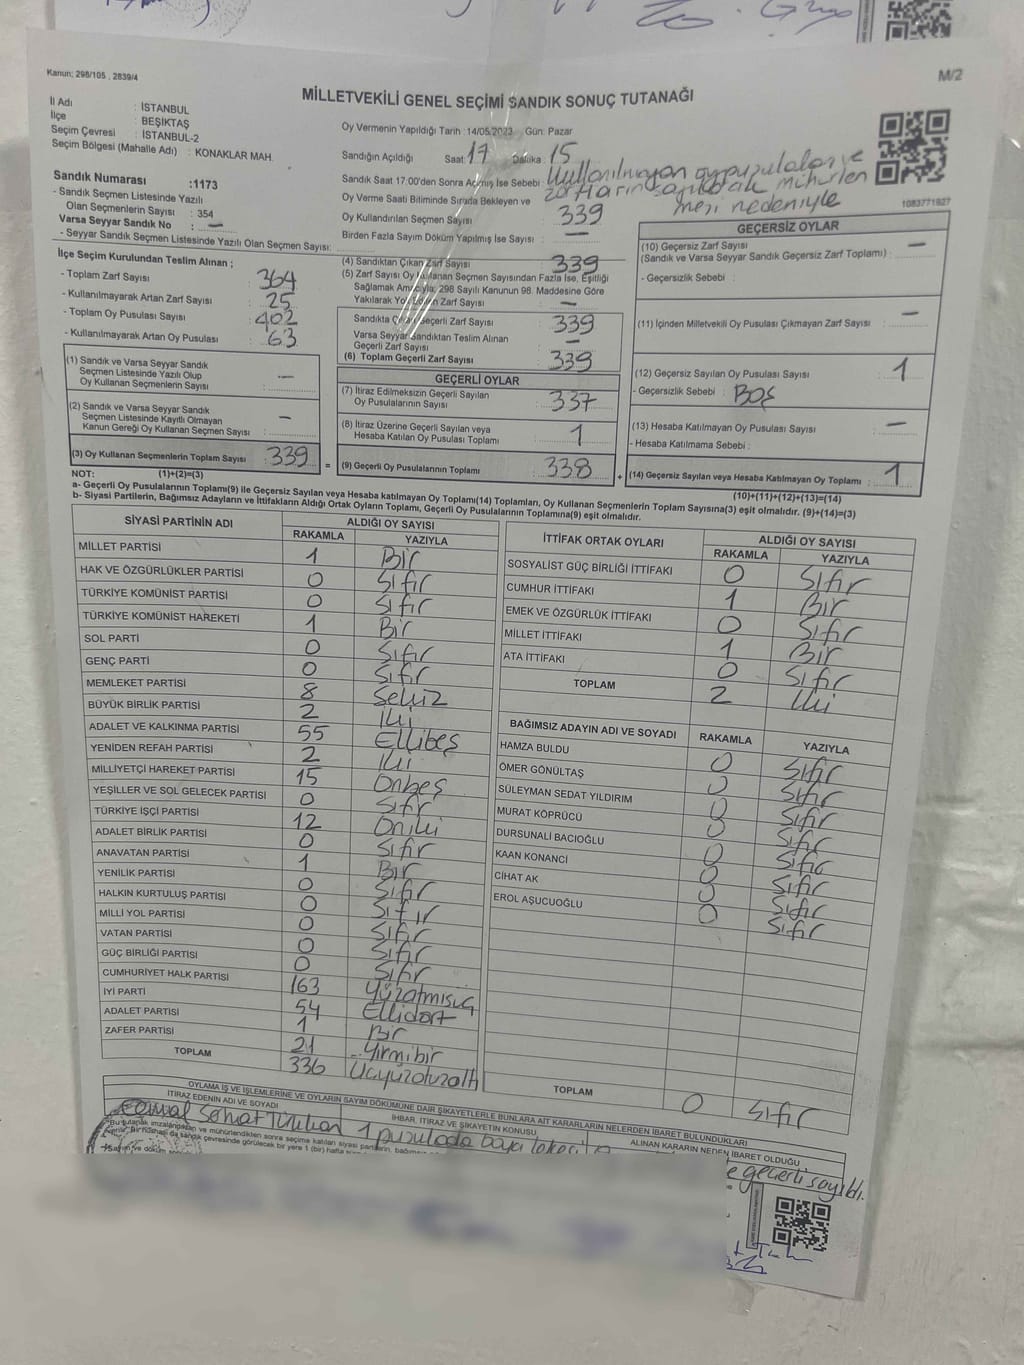 Kanun; 298/105 , 2839/4
M/2
MİLLETVEKİLİ GENEL SEÇİMİ SANDIK SONUÇ TUTANAĞI
İl Adı : İSTANBUL
İlçe : BEŞİKTAŞ
Seçim Çevresi : İSTANBUL-2
Seçim Bölgesi (Mahalle Adı) : KONAKLAR MAH.
Oy Vermenin Yapıldığı Tarih : 14/05/2023 Gün: Pazar
Sandığın Açıldığı Saat: 17 Dakika : 15
Sandık Saat 17:00'den Sonra Açılmış İse Sebebi : Kullanılmayan oy pusulaları ve
zarfların sayılarak mühürlen
mesi nedeniyle
Oy Verme Saati Bitiminde Sırada Bekleyen ve
Oy Kullandırılan Seçmen Sayısı 339
Birden Fazla Sayım Döküm Yapılmış İse Sayısı : —
1083771927
Sandık Numarası :1173
- Sandık Seçmen Listesinde Yazılı
Olan Seçmenlerin Sayısı : 354
Varsa Seyyar Sandık No : —
- Seyyar Sandık Seçmen Listesinde Yazılı Olan Seçmen Sayısı:
İlçe Seçim Kurulundan Teslim Alınan ;
- Toplam Zarf Sayısı : 364
- Kullanılmayarak Artan Zarf Sayısı : 25
- Toplam Oy Pusulası Sayısı : 402
- Kullanılmayarak Artan Oy Pusulası : 63
(1) Sandık ve Varsa Seyyar Sandık
Seçmen Listesinde Yazılı Olup
Oy Kullanan Seçmenlerin Sayısı : —
(2) Sandık ve Varsa Seyyar Sandık
Seçmen Listesinde Kayıtlı Olmayan
Kanun Gereği Oy Kullanan Seçmen Sayısı : —
(3) Oy Kullanan Seçmenlerin Toplam Sayısı : 339
(4) Sandıktan Çıkan Zarf Sayısı : 339
(5) Zarf Sayısı Oy Kullanan Seçmen Sayısından Fazla İse, Eşitliği
Sağlamak Amacıyla, 298 Sayılı Kanunun 98. Maddesine Göre
Yakılarak Yok Edilen Zarf Sayısı : —
Sandıkta Çıkan Geçerli Zarf Sayısı : 339
Varsa Seyyar Sandıktan Teslim Alınan
Geçerli Zarf Sayısı : —
(6) Toplam Geçerli Zarf Sayısı : 339
GEÇERLİ OYLAR
(7) İtiraz Edilmeksizin Geçerli Sayılan
Oy Pusulalarının Sayısı : 337
(8) İtiraz Üzerine Geçerli Sayılan veya
Hesaba Katılan Oy Pusulası Toplamı : 1
= (9) Geçerli Oy Pusulalarının Toplamı : 338 +
GEÇERSİZ OYLAR
(10) Geçersiz Zarf Sayısı : —
(Sandık ve Varsa Seyyar Sandık Geçersiz Zarf Toplamı)
- Geçersizlik Sebebi :
(11) İçinden Milletvekili Oy Pusulası Çıkmayan Zarf Sayısı : —
(12) Geçersiz Sayılan Oy Pusulası Sayısı : 1
- Geçersizlik Sebebi : BOŞ
(13) Hesaba Katılmayan Oy Pusulası Sayısı : —
- Hesaba Katılmama Sebebi :
(14) Geçersiz Sayılan veya Hesaba Katılmayan Oy Toplamı : 1
NOT: (1)+(2)=(3)
(10)+(11)+(12)+(13)=(14)
a- Geçerli Oy Pusulalarının Toplamı(9) ile Geçersiz Sayılan veya Hesaba katılmayan Oy Toplamı(14) Toplamları, Oy Kullanan Seçmenlerin Toplam Sayısına(3) eşit olmalıdır. (9)+(14)=(3)
b- Siyasi Partilerin, Bağımsız Adayların ve İttifakların Aldığı Ortak Oyların Toplamı, Geçerli Oy Pusulalarının Toplamına(9) eşit olmalıdır.
SİYASİ PARTİNİN ADI ALDIĞI OY SAYISI
RAKAMLA YAZIYLA
MİLLET PARTİSİ 1 Bir
HAK VE ÖZGÜRLÜKLER PARTİSİ 0 Sıfır
TÜRKİYE KOMÜNİST PARTİSİ 0 Sıfır
TÜRKİYE KOMÜNİST HAREKETİ 1 Bir
SOL PARTİ 0 Sıfır
GENÇ PARTİ 0 Sıfır
MEMLEKET PARTİSİ 8 Sekiz
BÜYÜK BİRLİK PARTİSİ 2 İki
ADALET VE KALKINMA PARTİSİ 55 Ellibeş
YENİDEN REFAH PARTİSİ 2 İki
MİLLİYETÇİ HAREKET PARTİSİ 15 Onbeş
YEŞİLLER VE SOL GELECEK PARTİSİ 0 Sıfır
TÜRKİYE İŞÇİ PARTİSİ 12 Oniki
ADALET BİRLİK PARTİSİ 0 Sıfır
ANAVATAN PARTİSİ 1 Bir
YENİLİK PARTİSİ 0 Sıfır
HALKIN KURTULUŞ PARTİSİ 0 Sıfır
MİLLİ YOL PARTİSİ 0 Sıfır
VATAN PARTİSİ 0 Sıfır
GÜÇ BİRLİĞİ PARTİSİ 0 Sıfır
CUMHURİYET HALK PARTİSİ 163 Yüzatmışüç
İYİ PARTİ 54 Ellidört
ADALET PARTİSİ 1 Bir
ZAFER PARTİSİ 21 Yirmibir
TOPLAM 336 Üçyüzotuzaltı
İTTİFAK ORTAK OYLARI ALDIĞI OY SAYISI
RAKAMLA YAZIYLA
SOSYALİST GÜÇ BİRLİĞİ İTTİFAKI 0 Sıfır
CUMHUR İTTİFAKI 1 Bir
EMEK VE ÖZGÜRLÜK İTTİFAKI 0 Sıfır
MİLLET İTTİFAKI 1 Bir
ATA İTTİFAKI 0 Sıfır
TOPLAM 2 İki
BAĞIMSIZ ADAYIN ADI VE SOYADI RAKAMLA YAZIYLA
HAMZA BULDU 0 Sıfır
ÖMER GÖNÜLTAŞ 0 Sıfır
SÜLEYMAN SEDAT YILDIRIM 0 Sıfır
MURAT KÖPRÜCÜ 0 Sıfır
DURSUNALİ BACIOĞLU 0 Sıfır
KAAN KONANCI 0 Sıfır
CİHAT AK 0 Sıfır
EROL AŞUCUOĞLU 0 Sıfır
TOPLAM 0 Sıfır
OYLAMA İŞ VE İŞLEMLERİNE VE OYLARIN SAYIM DÖKÜMÜNE DAİR ŞİKAYETLERLE BUNLARA AİT KARARLARIN NELERDEN İBARET BULUNDUKLARI
İTİRAZ EDENİN ADI VE SOYADI İHBAR, İTİRAZ VE ŞİKAYETİN KONUSU ALINAN KARARIN NEDEN İBARET OLDUĞU
1 pusulada boya lekesi
geçerli sayıldı.